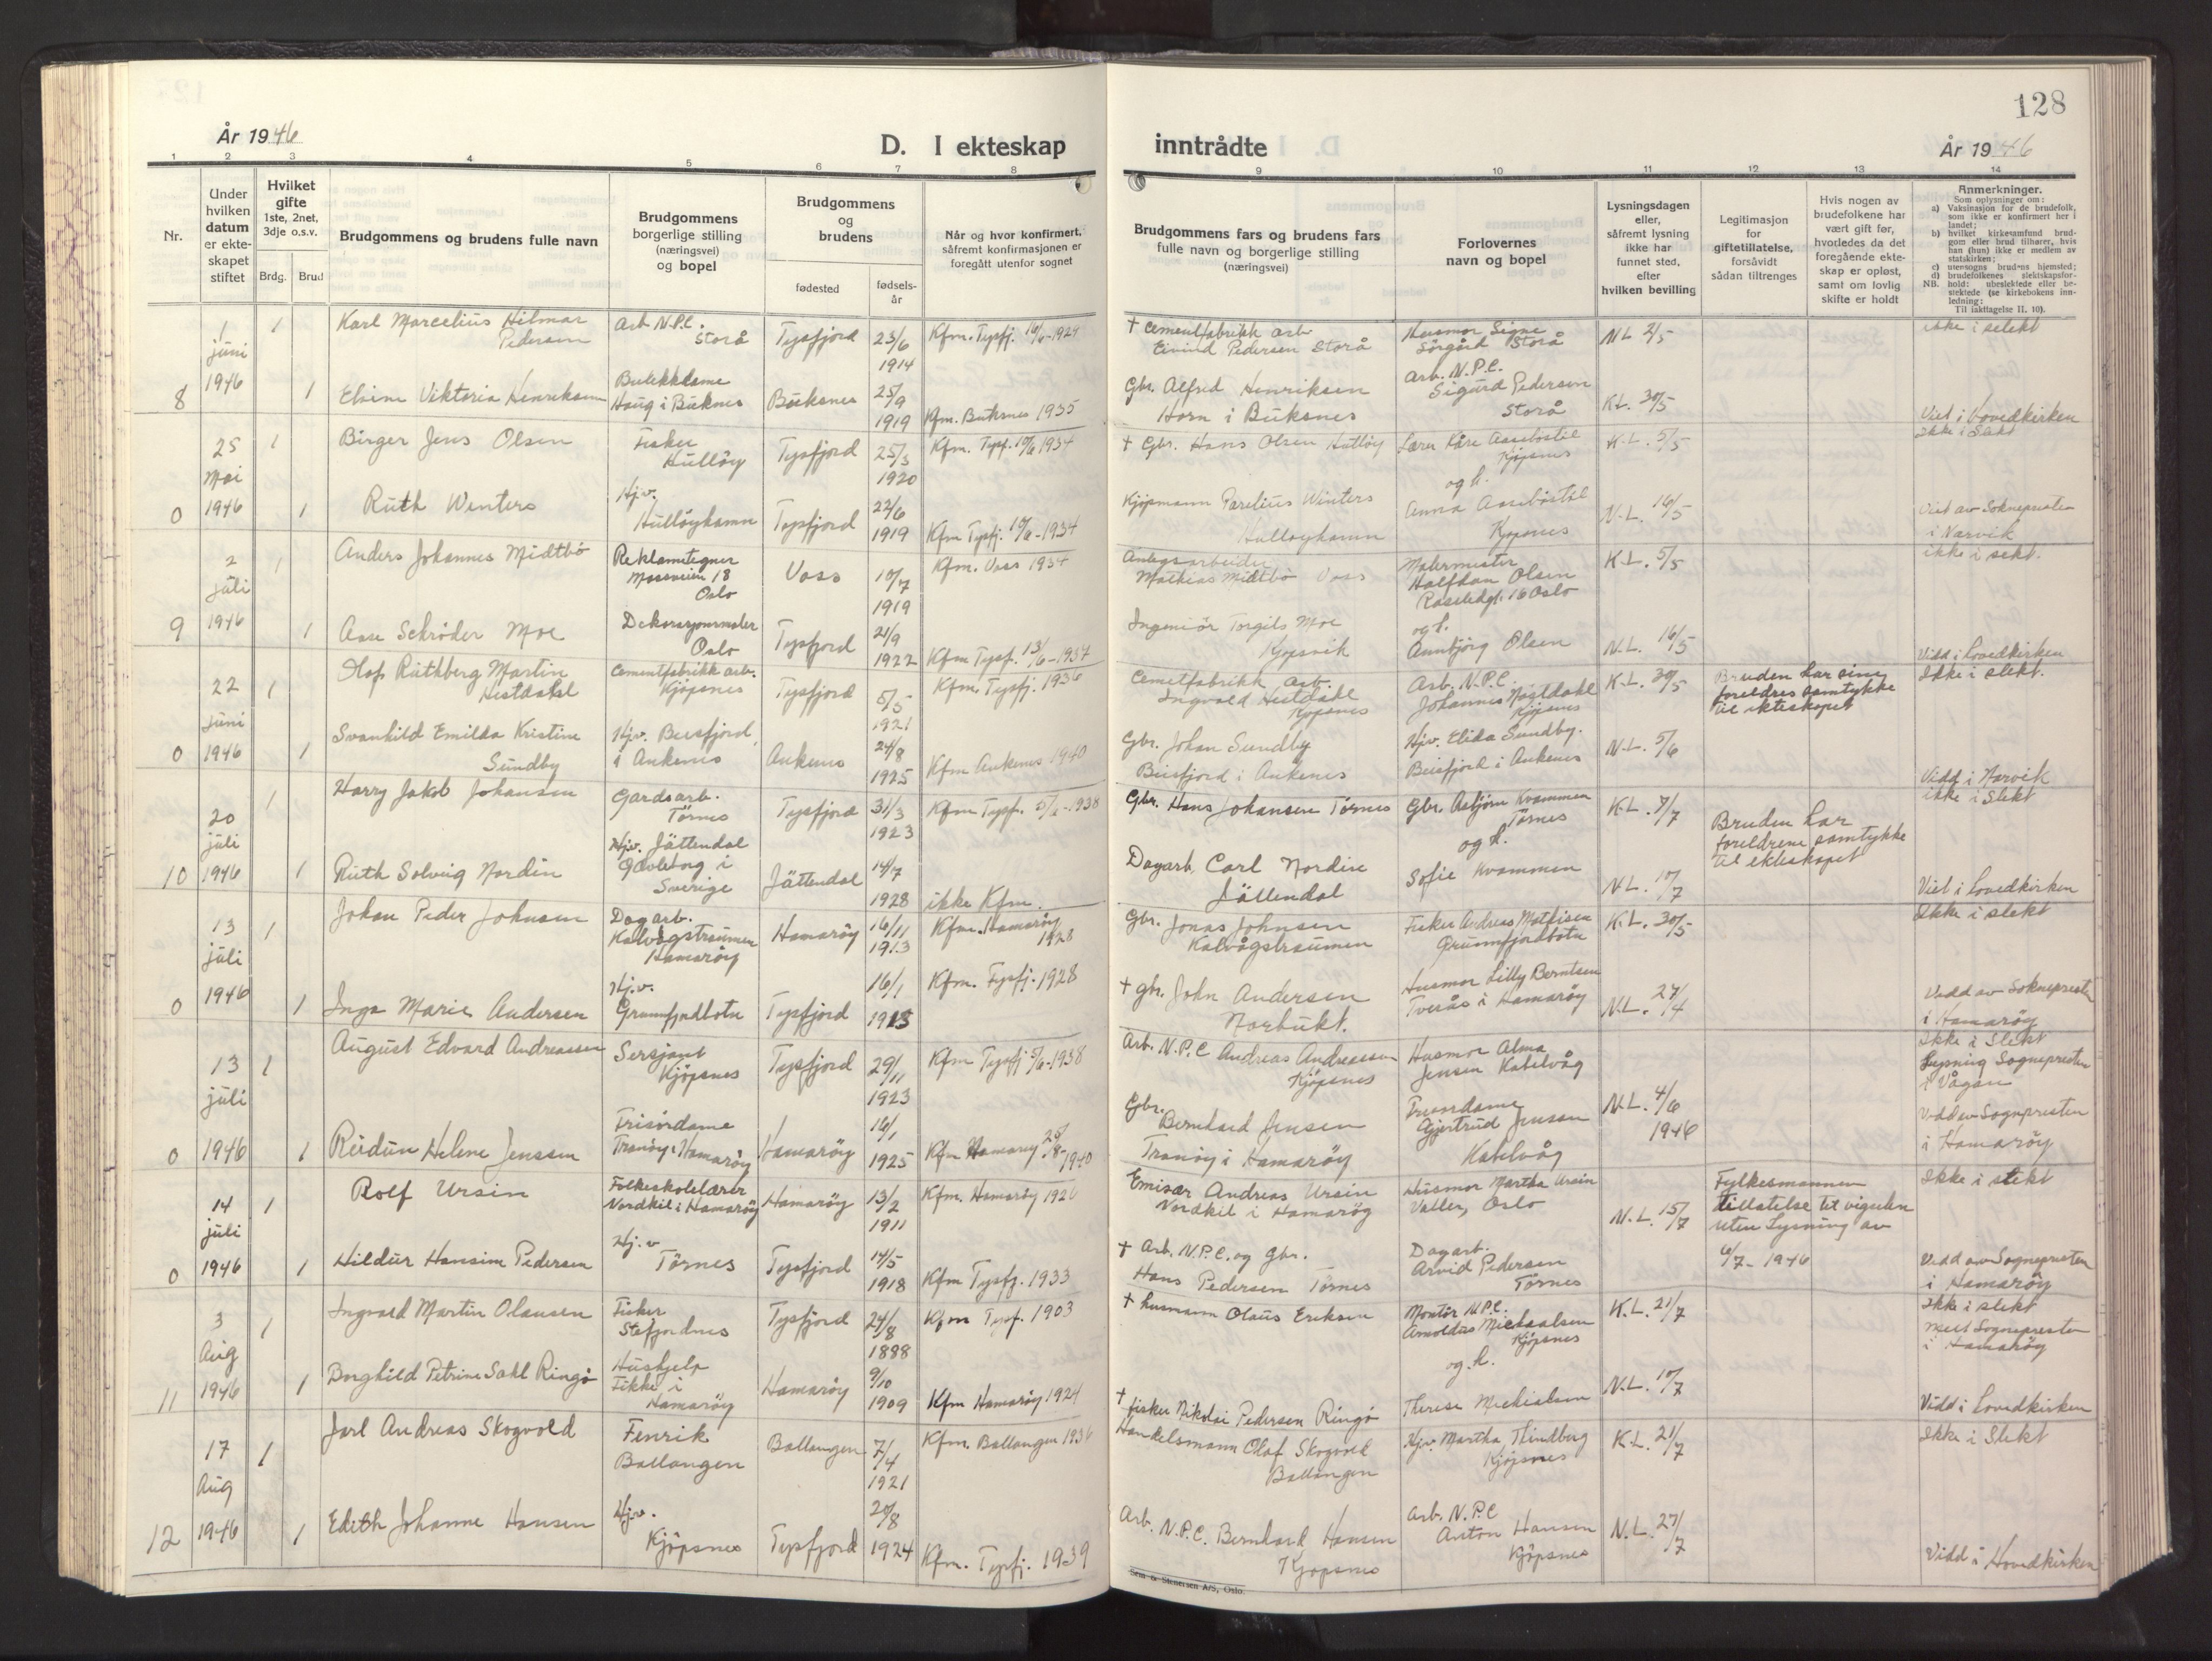 128
År 1946
D. I ekteskap
inntrådte
År 1946
1 2 3 4 5 6 7 8 9 10 11 12 13 14
Nr.
Under
hvilken
datum
er ekte-
skapet
stiftet
Hvilket
gifte
1ste, 2net,
3dje o.s.v.
Brdg. Brud
Brudgommens og brudens fulle navn
Brudgommens
borgerlige stilling
(næringsvei)
og bopel
Brudgommens
og
brudens
fødested
fødsels-
år
Når og hvor konfirmert,
såfremt konfirmasjonen er
foregått utenfor sognet
Brudgommens fars og brudens fars
fulle navn og borgerlige stilling
(næringsvei)
Forlovernes
navn og bopel
Lysningsdagen
eller,
såfremt lysning
ikke har
funnet sted,
efter
hvilken bevilling
Legitimasjon
for
giftetillatelse,
forsåvidt
sådan tiltrenges
Hvis nogen av
brudefolkene har
vært gift før,
hvorledes da det
foregående ekte-
skap er opløst,
samt om lovlig
skifte er holdt
Anmerkninger.
Som oplysninger om:
a) Vaksinasjon for de brudefolk,
som ikke er konfirmert her i
landet;
b) hvilket kirkesamfund brud-
gom eller brud tilhører, hvis
han (hun) ikke er medlem av
statskirken;
c) utensogns brudens hjemsted;
d) brudefolkenes slektskapsfor-
hold: ubeslektede eller be-
slektede (se kirkebokens inn-
ledning;
NB.
Til iakttagelse II, 10).
8
1
juni
1946
1
Karl Marcelius Hilmar
Pedersen
Arb N.P.C.
Storå
Tysfjord
23/6
1914
Kfm. Tysfj. 16/6-1929
† Cementfabrikk arb
Eivind Pedersen Storå
Husmor Signe
Sørgård Storå
N.L 2/5
ikke i slekt
1
Elvine Viktoria Henriksen
Butikkdame
Haug i Buknes
Buksnes
25/9
1919
Kfm. Buksnes 1935
Gbr. Alfred Henriksen
Horn i Buksnes
Arb. N.P.C.
Sigurd Pedersen
Storå
K.L. 30/5
Viet i hovedkirken
0
25
Mai
1946
1
Birger Jens Olsen
Fisker
Hulløy
Tysfjord
25/3
1920
Kfm. Tysf. 10/6 1934
† Gbr. Hans Olsen Hulløy
Lærer Kåre Aasebøstøl
Kjøpsnes
og h.
K.L. 5/5
Ikke i Slekt
1
Ruth Winters
Hj.v.
Hulløyhamn
Tysfjord
22/6
1919
Kfm Tysfj. 10/6-1934
Kjøpmann Parelius Winters
Hulløyhamn
Anna Aasebøstøl
Kjøpsnes
N.L. 16/5
Viet av Soknepresten
i Narvik
9
2
juli
1946
1
Anders Johannes Midtbø
Reklametegner
Mossveien 18
Oslo
Voss
10/7
1919
Kfm. Voss 1934
Anlegsarbeider
Mathias Midtbø Voss
Malermester
Halfdan Olsen
16 Oslo
og h.
K.L. 5/5
ikke i slekt.
1
Aase Schrøder Moe
Dekorasjonsmaler
Oslo
Tysfjord
21/9
1922
Kfm Tysf. 13/6-1937
Ingeniør Torgils Moe
Kjøpsvik
Aunbjørg Olsen
N.L. 16/5
Vidd i hovedkirken
0
22
juni
1946
1
Olaf Ruthberg Martin
Hestdahl
Cementfabrikk arb.
Kjøpsnes
Tysfjord
5/5
1921
Kfm. Tysfj. 1936
Cemetfabrikk arb.
Ingvald Hestdahl
Kjøpsnes
Arb. N.P.C.
Johannes Hestdahl
Kjøpsnes
K.L. 30/5
Bruden har sine
foreldres samtykke
til ekteskapet
Ikke i slekt.
1
Svanhild Emilda Kristine
Sundby
Hjv. Beisfjord,
i Ankenes
Ankenes
24/8
1925
Kfm Ankenes 1940
Gbr. Johan Sundby
Beisfjord i Ankenes
Hjv. Elida Sundby.
Beisfjord i Ankenes
N.L. 5/6
Vidd i Narvik
10
20
juli
1946
1
Harry Jakob Johansen
Gardsarb.
Tørnes
Tysfjord
31/3
1923
Kfm Tysf. 5/6-1938
Gbr. Hans Johansen Tørnes
Gbr. Asbjørn Kvammen
Tørnes
og h.
K.L. 7/7
Bruden har
foreldrene samtykke
til ekteskapet
ikke i Slekt
1
Ruth Solveig Nordin
Hjv. Jättendal
Gävleborg i
Sverige
Jättendal
14/7
1928
ikke Kfm.
Dagarb. Carl Nordin
Jättendal
Sofie Kvammen
N.L. 10/7
Viet i hovedkirken
0
13
juli
1946
1
Johan Peder Johnsen
Dagarb.
Kalvågstraumen
Hamarøy
Hamarøy
16/11
1913
Kfm. Hamarøy
1928
Gbr. Jonas Johnsen
Kalvågstraumen
Fisker Andreas Mathisen
Grunnfjordbotn
K.L. 30/5
Ikke i slekt
1
Inga Marie Andersen
Hj.v.
Grunnfjordbotn
Tysfjord
16/1
1913
Kfm. Tysfj. 1928
† gbr. John Andersen
Norbukt.
Husmor Lilly Berntsen
Tverås i Hamarøy
N.L. 27/4
Vidd av Soknepresten
i Hamarøy
0
13
juli
1946
1
August Edvard Andreassen
Sersjant
Kjöpsnes
Tysfjord
29/11
1923
Kfm Tysfj 5/6-1938
Arb. N.P.C Andreas Andreassen
Kjöpsnes
Husmor Alma
Jensen Kabelvåg
Ikke i Slekt
Lysning Sognepresten
i Vågan
1
Reidun Helene Jenssen
Frisørdame
Tranøy i Hamarøy
Hamarøy
16/1
1925
Kfm Hamarøy 25/8-1940
Gbr.
Bernhard Jensen
Tranöy i Hamaröy
Gjertrud Jensen
Kabelvåg
N.L. 4/6
1946
Vidd av Sognepresten
i Hamarøy
0
14
juli
1946
1
Rolf Ursin
Folkeskolelærer
Nordkil i Hamarøy
Hamarøy
13/2
1911
Kfm. Hamarøy 1926
Emisær Andreas Ursin
Nordkil i Hamarøy
Husmor Martha Ursin
Valler, Oslo
N.L. 15/7
Fylkesmannen
tillatelse til vigselen
uten Lysning av
6/7-1946
Ikke i slekt
1
Hildur Hansine Pedersen
Hj.v
Tørnes
Tysfjord
14/5
1918
Kfm Tysfj. 1933
† Arb. N.P.C. og Gbr.
Hans Pedersen Tørnes
Dagarb.
Arvid Pedersen
Tørnes
Vidd av Sognepresten
i Hamarøy
11
3
Aug
1946
1
Ingvald Martin Olausen
Fisker
Stefjordnes
Tysfjord
24/8
1888
Kfm Tysf. 1903
† husmann Olaus Eriksen
Montør N.P.C.
Arnoldus Michaelsen
Kjøpsnes
og h.
K.L. 21/7
Ikke i slekt
Sognepresten
i Hamarøy
1
Borghild Petrine Sahl Ringø
Hushjelp
Fikke i
Hamarøy
Hamarøy
9/10
1909
Kfm Hamarøy 1924
† fisker Nikolai Pedersen Ringø
Therese Michalsen
N.L. 10/7
Vidd i hovedkirken
12
17
Aug
1946
1
Jarl Andreas Skogvold
Fenrik
Ballangen
Ballangen
7/4
1921
Kfm. Ballangen 1936
Handelsmann Olaf Skogvold
Ballangen
Hjv. Martha Thindberg
Kjöpsnes
K.L. 21/7
Ikke i Slekt
1
Edith Johanne Hansen
Hjv.
Kjöpsnes
Tysfjord
20/8
1924
Kfm. Tysfj. 1939
Arb. N.P.C. Bernhard Hansen
Kjøpsnes
Arb. N.P.C
Anton Hansen
Kjöpsnes
N.L. 27/7
Vidd i Hovedkirken
Sem & Stenersen A/S, Oslo.